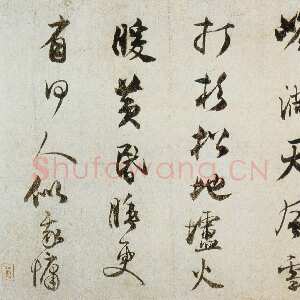 滿天風雪
打杉松地爐火
暖黃昏睡更
有何人似我慵
Shufawang.CN